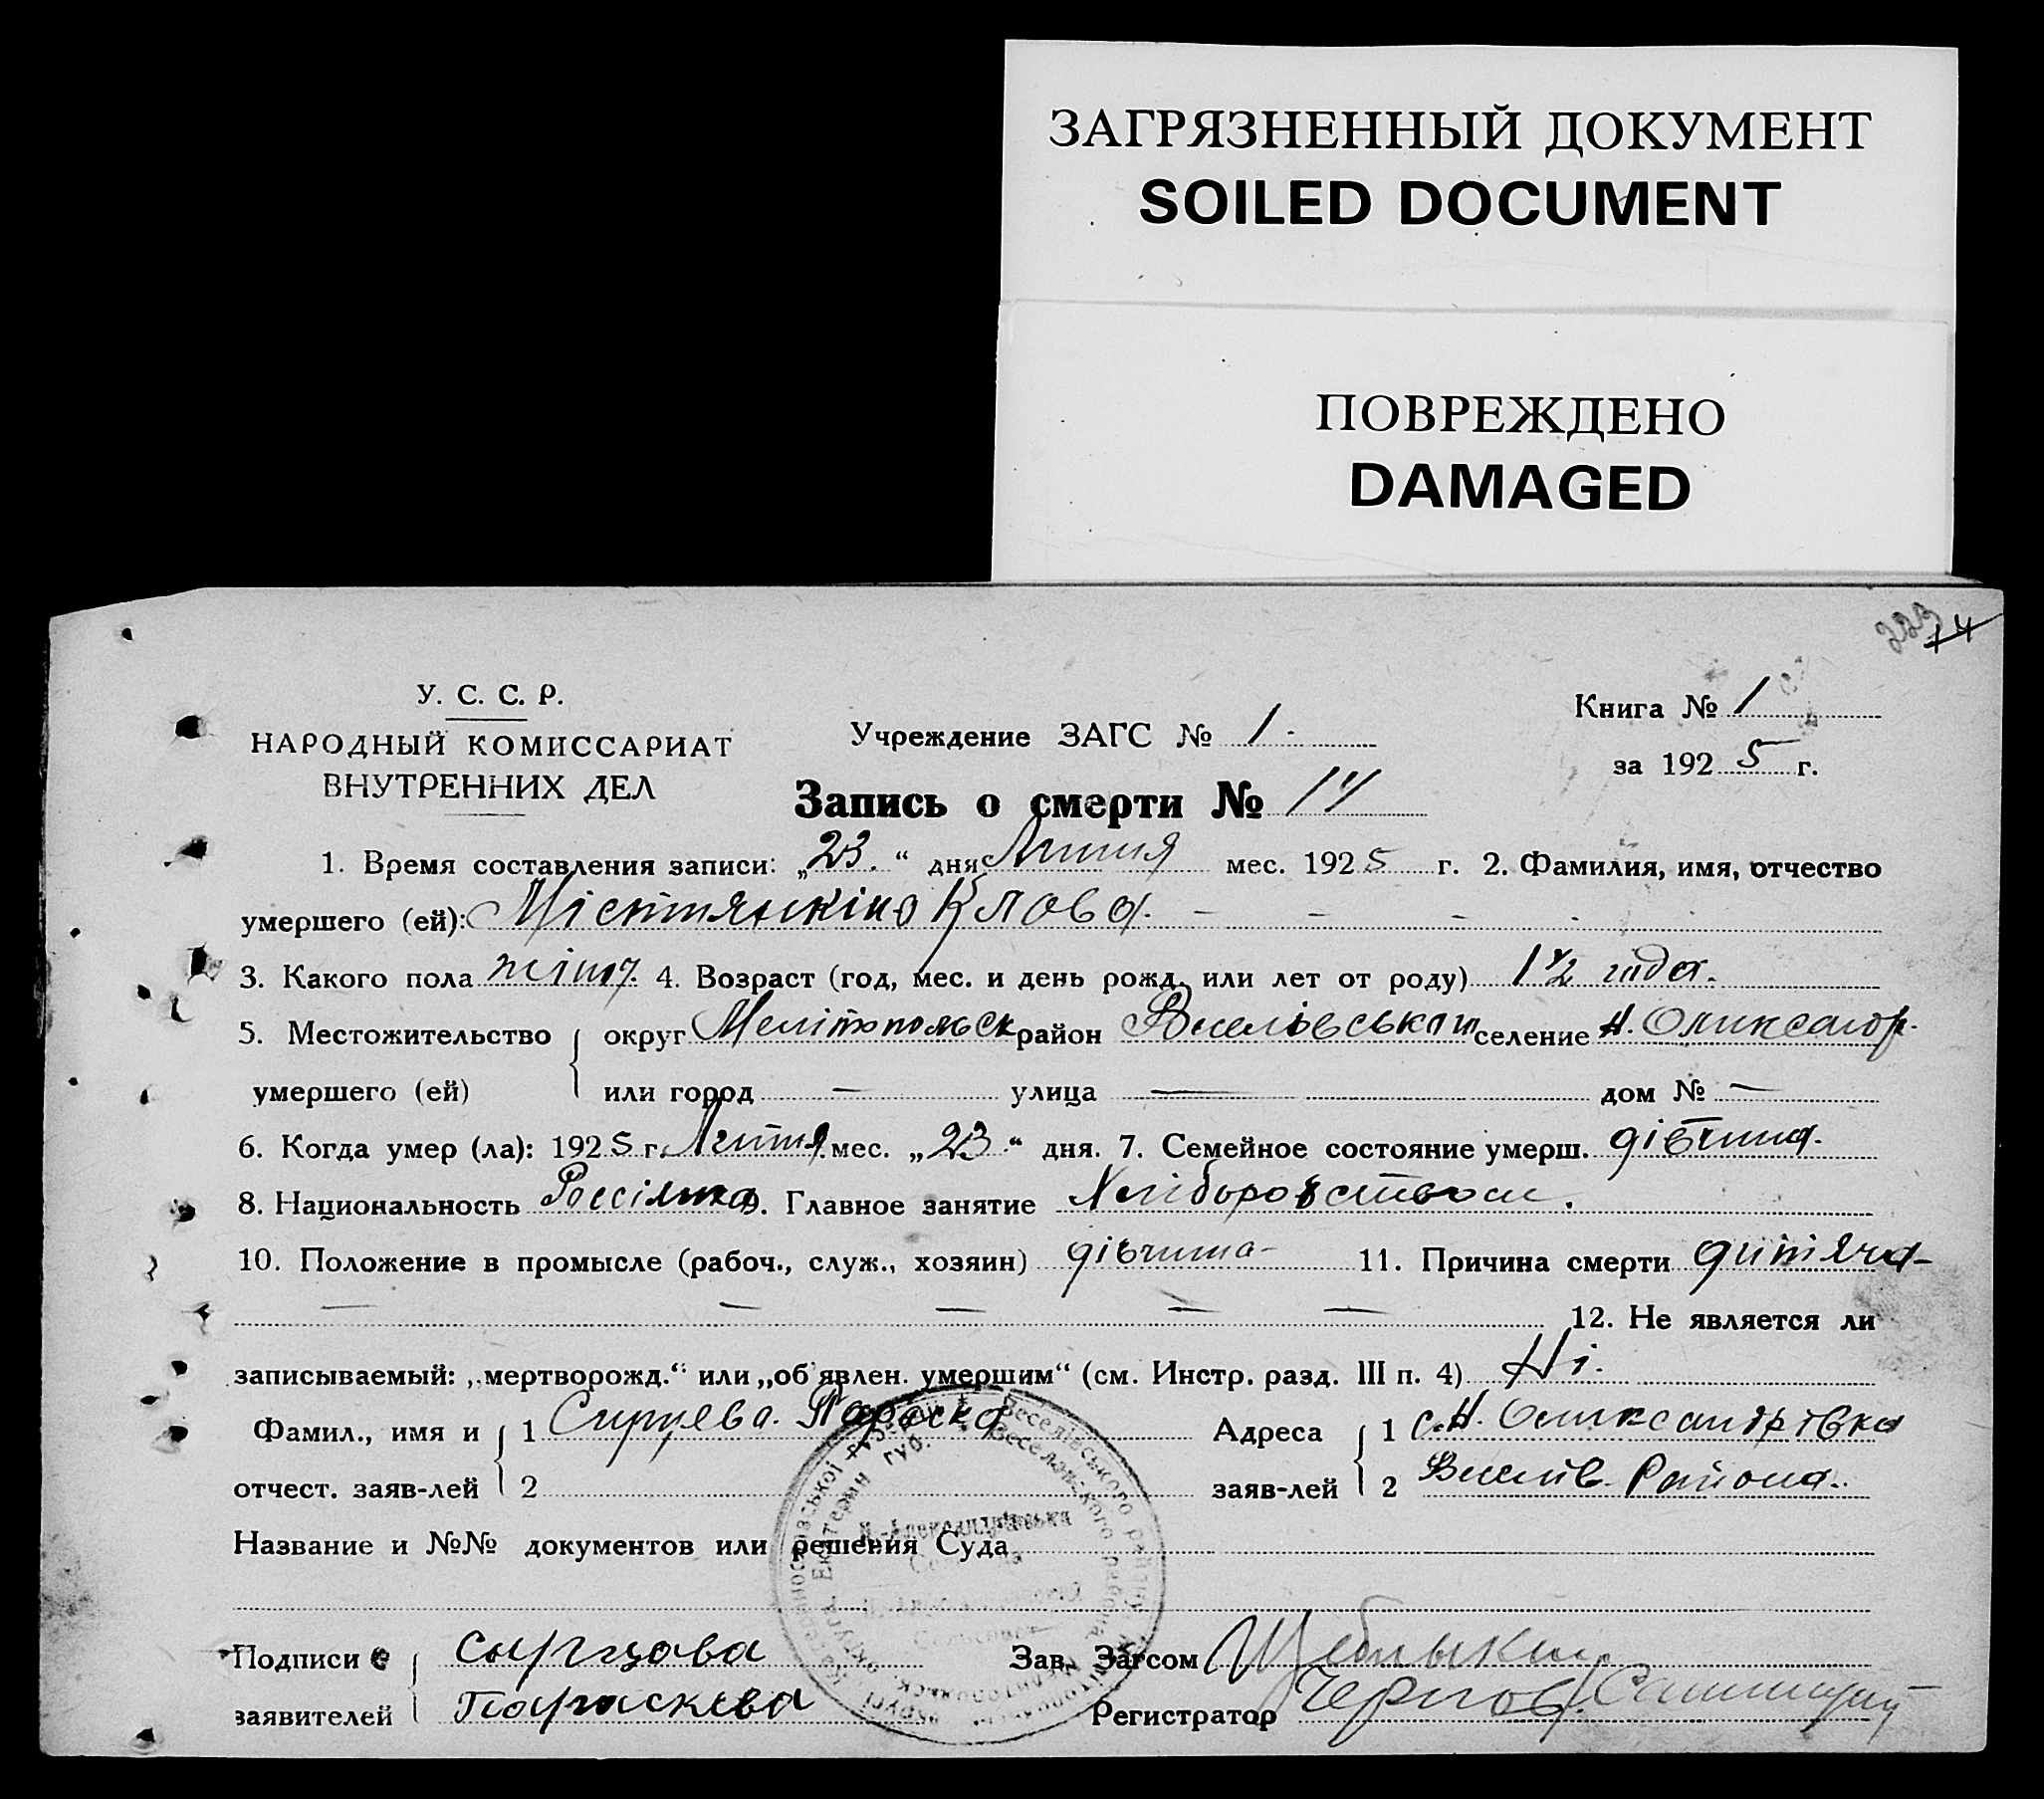 ЗАГРЯЗНЕННЫЙ ДОКУМЕНТ
SOILED DOCUMENT
ПОВРЕЖДЕНО
DAMAGED
223 14
У. С. С. Р.
НАРОДНЫЙ КОМИССАРИАТ
ВНУТРЕННИХ ДЕЛ
Учреждение ЗАГС № 1.
Книга № 1
за 1925 г.
Запись о смерти № 14
1. Время составления записи: „23.“ дня Липня мес. 1925 г. 2. Фамилия, имя, отчество
умершего (ей): Клава. – – – –
3. Какого пола жіноч. 4. Возраст (год, мес. и день рожд. или лет от роду) 1 1/2 года.
5. Местожительство округ Мелітопольск район Веселівський селение Н. Олександр.
умершего (ей) или город — улица — дом № —
6. Когда умер (ла): 1925 г. Липня мес. „23“ дня. 7. Семейное состояние умерш. дівчина.
8. Национальность Россіянка 9. Главное занятие Хліборобством.
10. Положение в промысле (рабоч., служ., хозяин) дівчина – 11. Причина смерти дитяча –
— — — — — 12. Не является ли
записываемый: „мертворожд.“ или „об'явлен. умершим“ (см. Инстр. разд. III п. 4) Ні.
Фамил., имя и 1 Сирцева Параска Адреса 1 с. Н. Олександрівка
отчест. заяв-лей 2 заяв-лей 2 Веселів. Района.
Название и №№ документов или решения Суда
Подписи Сырцова Зав. Загсом Шеблыкин
заявителей Параскева Регистратор